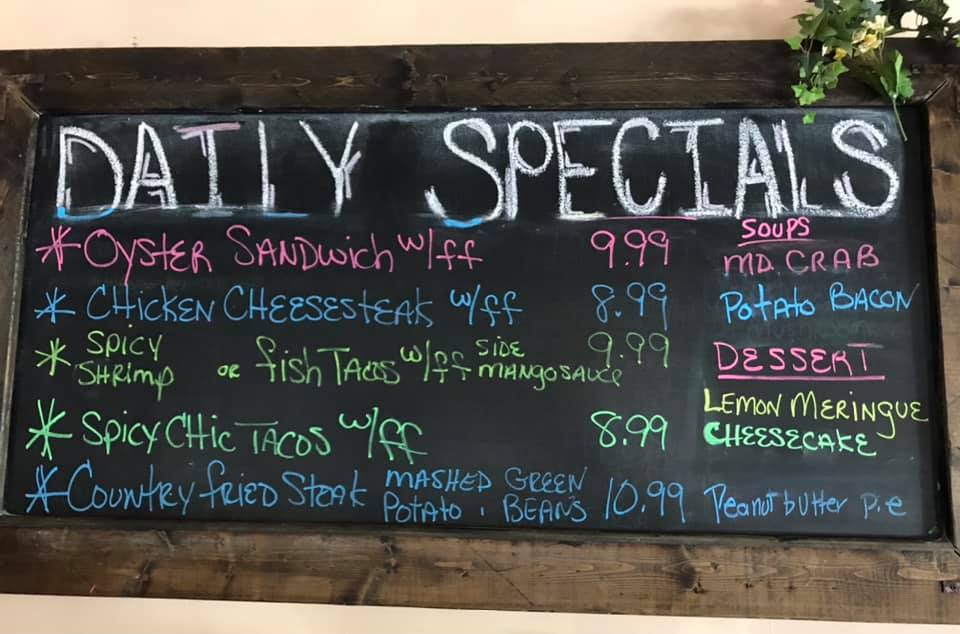 DAILY SPECIALS
* OYSTER SANDWICH w/ff 9.99
* CHICKEN CHEESESTEAK w/ff 8.99
* SPICY SHRIMP OR fish TACOS w/ff SIDE MANGO SAUCE 9.99
* SPICY CHIC TACOS w/ff 8.99
* COUNTRY FRIED STEAK MASHED POTATO, GREEN BEANS 10.99
SOUPS
MD. CRAB
Potato BACON
DESSERT
LEMON MERINGUE
CHEESECAKE
Peanut butter pie